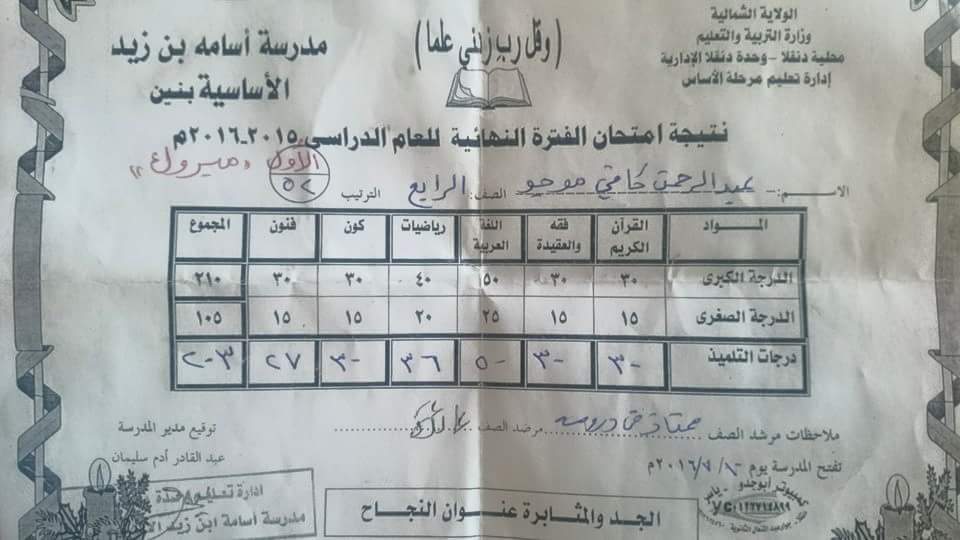 الولاية الشمالية
وزارة التربية والتعليم
محلية دنقلا - وحدة دنقلا الإدارية
إدارة تعليم مرحلة الأساس
(وقل رب زدني علما)
مدرسة أسامه بن زيد
الأساسية بنين
نتيجة امتحان الفترة النهائية للعام الدراسي ٢٠١٥-٢٠١٦م
الاسم: عبدالرحمن الصف: الرابع الترتيب الأول ٥٢ «مبروك»
المواد القرآن الكريم فقه والعقيدة اللغة العربية رياضيات كون فنون المجموع
الدرجة الكبرى ٣٠ ٣٠ ٥٠ ٤٠ ٣٠ ٣٠ ٢١٠
الدرجة الصغرى ١٥ ١٥ ٢٥ ٢٠ ١٥ ١٥ ١٠٥
درجات التلميذ ٣٠ ٣٠ ٥٠ ٣٦ ٣٠ ٢٧ ٢٠٣
ملاحظات مرشد الصف ممتاز في دروسه مرشد الصف
توقيع مدير المدرسة
عبد القادر أدم سليمان
تفتح المدرسة يوم ٢٠١٦/٧/١٠م
الجد والمثابرة عنوان النجاح
كمبيوتر أبوجدو
إدارة تعليم وحدة
مدرسة أسامة ابن زيد